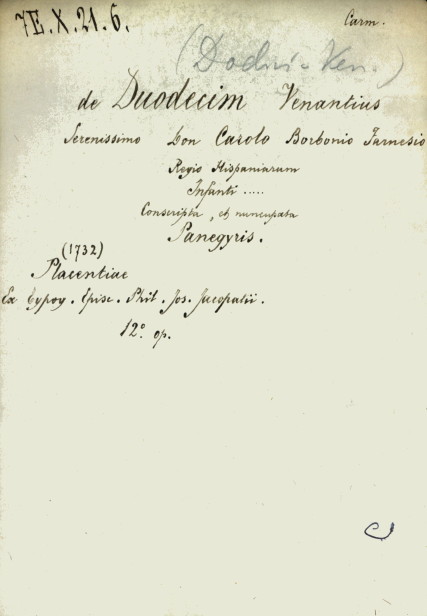 7E.X.21.6.
Carm.
(Dodici Ven.)
de Duodecim Venantius
Serenissimo Don Carolo Borbonio Farnesio
Regio Hispaniarum
Infanti .....
Conscripta, et nuncupata
Panegyris.
(1732)
Placentiae
Ex typogr. Episc. Phil. Jos. Jacopatii.
12° op.